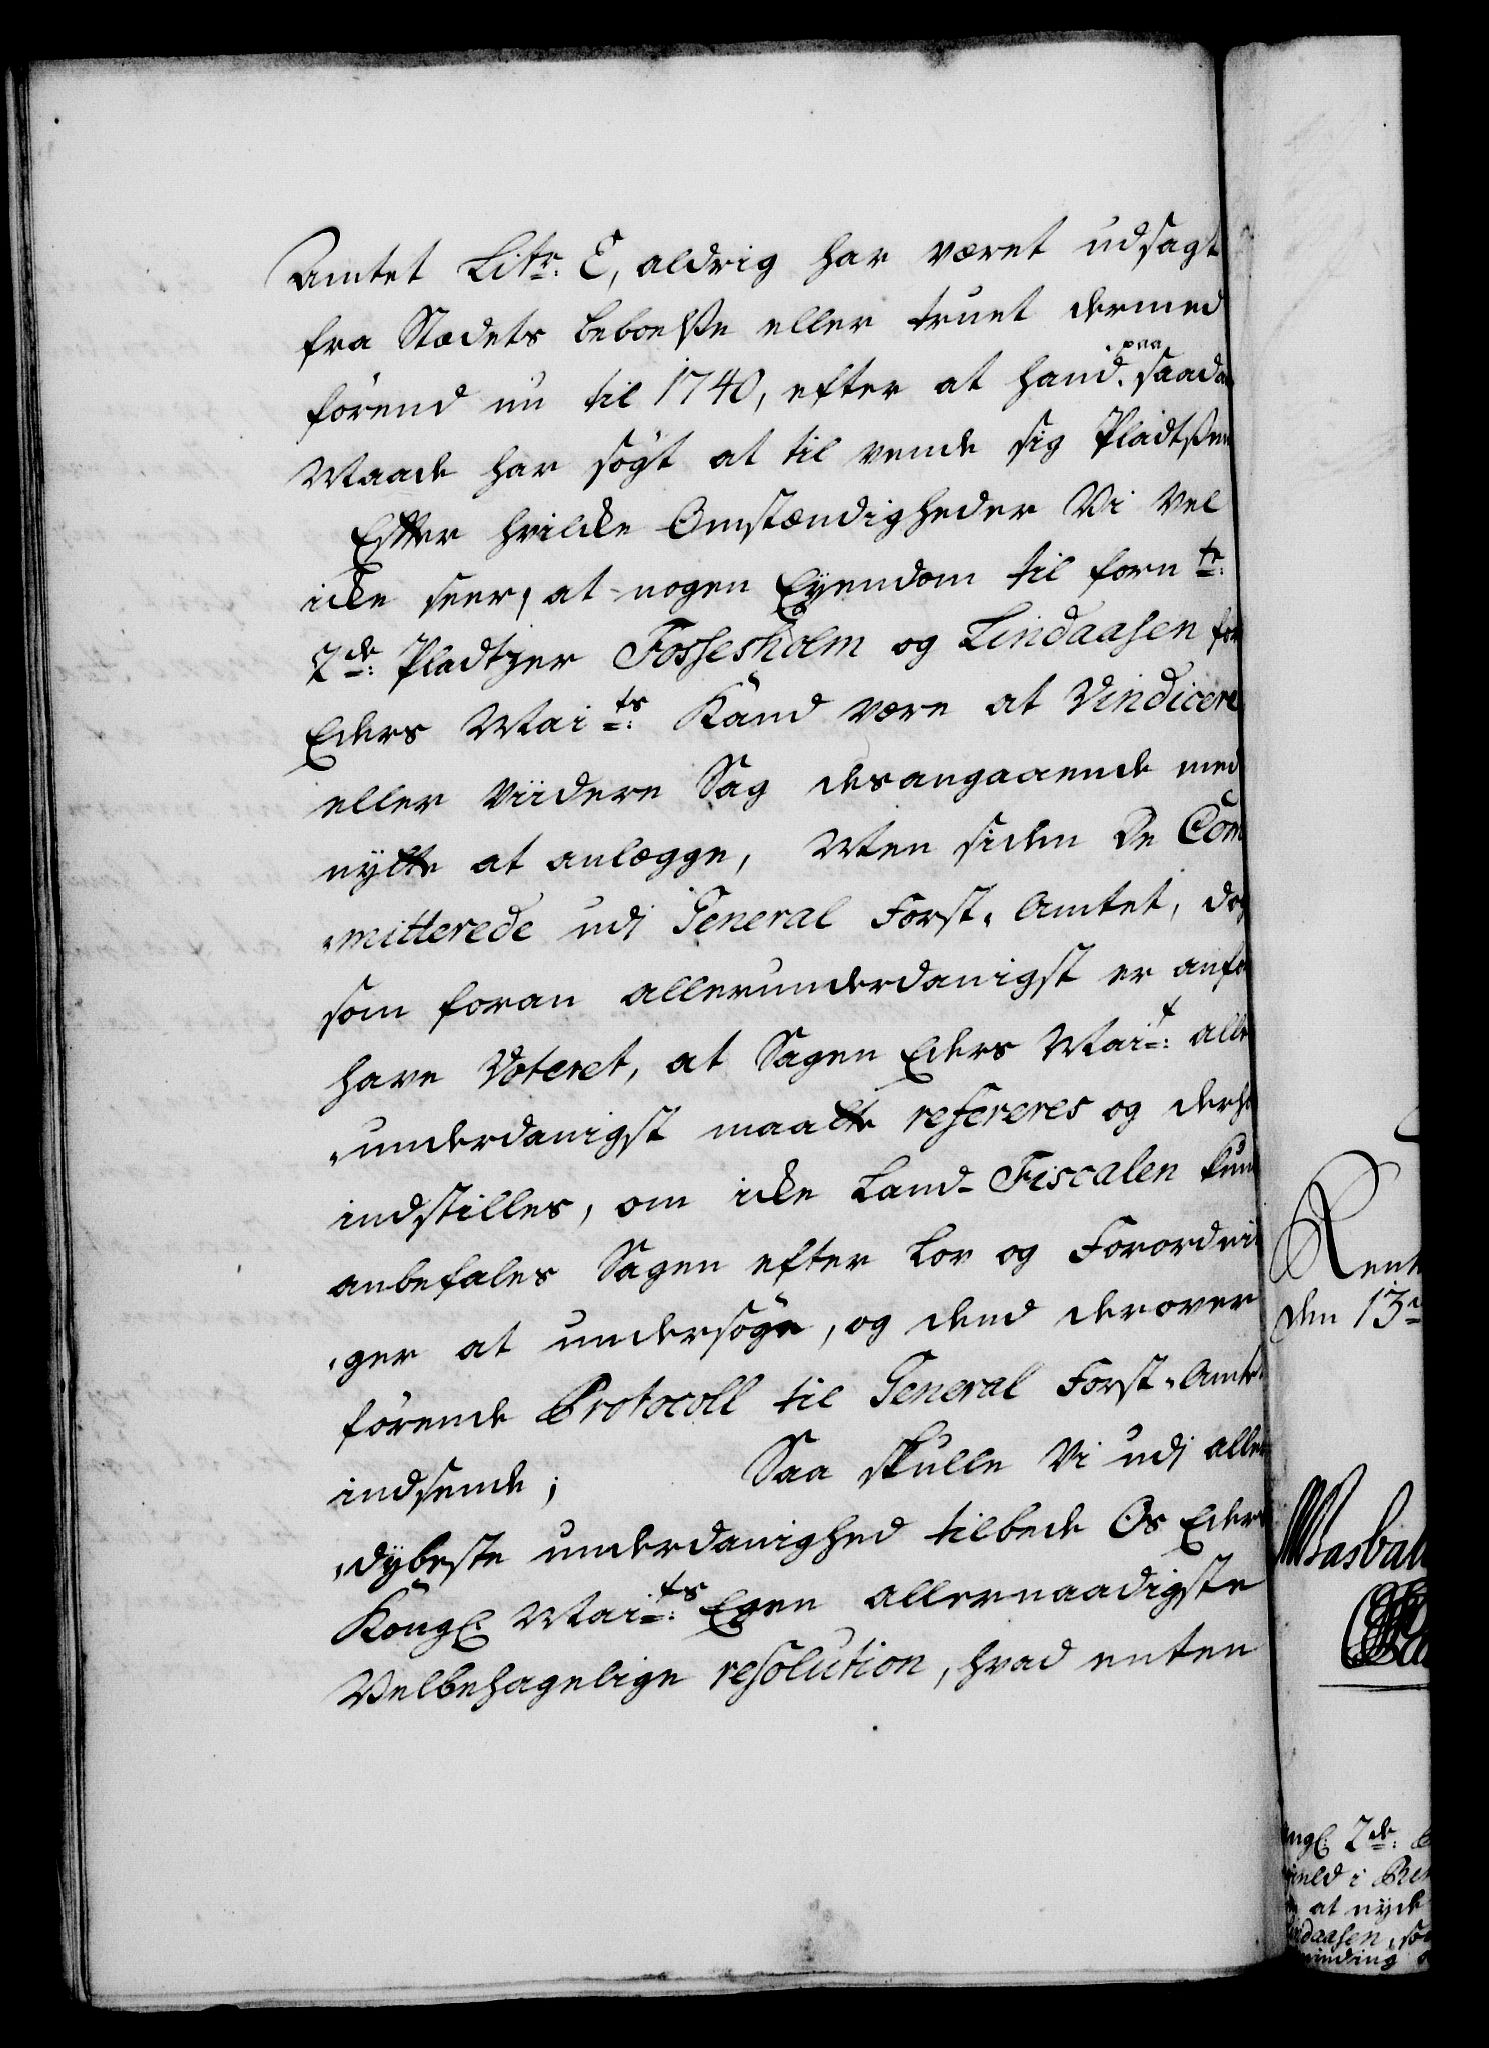 Amtet Litr: E, aldrig har været udsagt
fra Stædets beboelse eller truet dermed
förend nu til 1740, efter at hand paa saada
Maade har sögt at til vende sig Pladtsen
Efter hvilke Omstændigheder Vi vel
icke seer, at nogen Eyendom til forn te:
2de: Pladtzer Fossesholm og Lindaasen for
Eders Mai ts: Kand være at Vindicere
eller viidere Sag desangaaende med
nytte at anlægge, Men siden De Com
mitterede udj General Forst-Amtet, dog
som foran allerunderdanigst er anfö
have Voteret, at Sagen Eders Mai t: aller
underdanigst maatte refereres og derho
indstilles, om icke Land-Fiscalen kun
anbefales Sagen efter Lov og Forordnin
ger at undersöge, og dend derover
förende Protocoll til General Forst-Amt
indsende; Saa skulle Vi udj aller
dybeste underdanighed tilbede Os Eders
Kongl: Mai ts: Egen allernaadigste
Velbehagelige resolution, hvad enten
Rent
den 13
ngl: 2de:
at nyde
indaasen, so
vinding